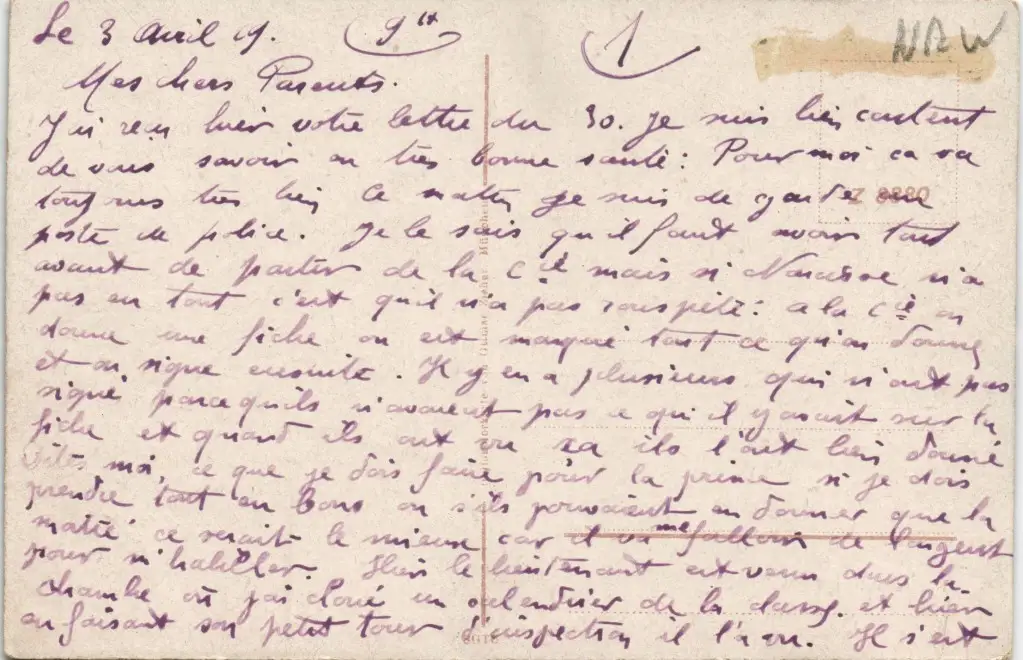 Le 3 Avril 19. 9bt 1 NRW
Mes chers Parents.
J'ai recu hier votre lettre du 30. Je suis bien content
de vous savoir en très bonne santé: Pour moi ca va
toujours très bien Ce matin je suis de garde au
Z 8880
poste de police. Je le sais qu'il faut avoir tout
avant de partir de la Cie mais si n'a
pas eu tout c'est qu'il n'a pas rouspété: a la Cie on
donne une fiche ou est marqué tout ce qu'on donne
et on signe ensuite. Il y en a plusieurs qui n'ont pas
signé parcequ'ils n'avaient pas ce qu'il y avait sur la
fiche et quand ils ont vu ca ils l'ont bien donné
Dites moi, ce que je dois faire pour la prime si je dois
prendre tout en Bons ou s'ils pouvaient en donner que la
moitié ce serait le mieux car il va me falloir de l'argent
pour m'habiller. Hier le lieutenant est venu dans la
chambre où j'ai cloué un calendrier de la classe. et hier
en faisant son petit tour d'inspection il l'a vu. Il s'est